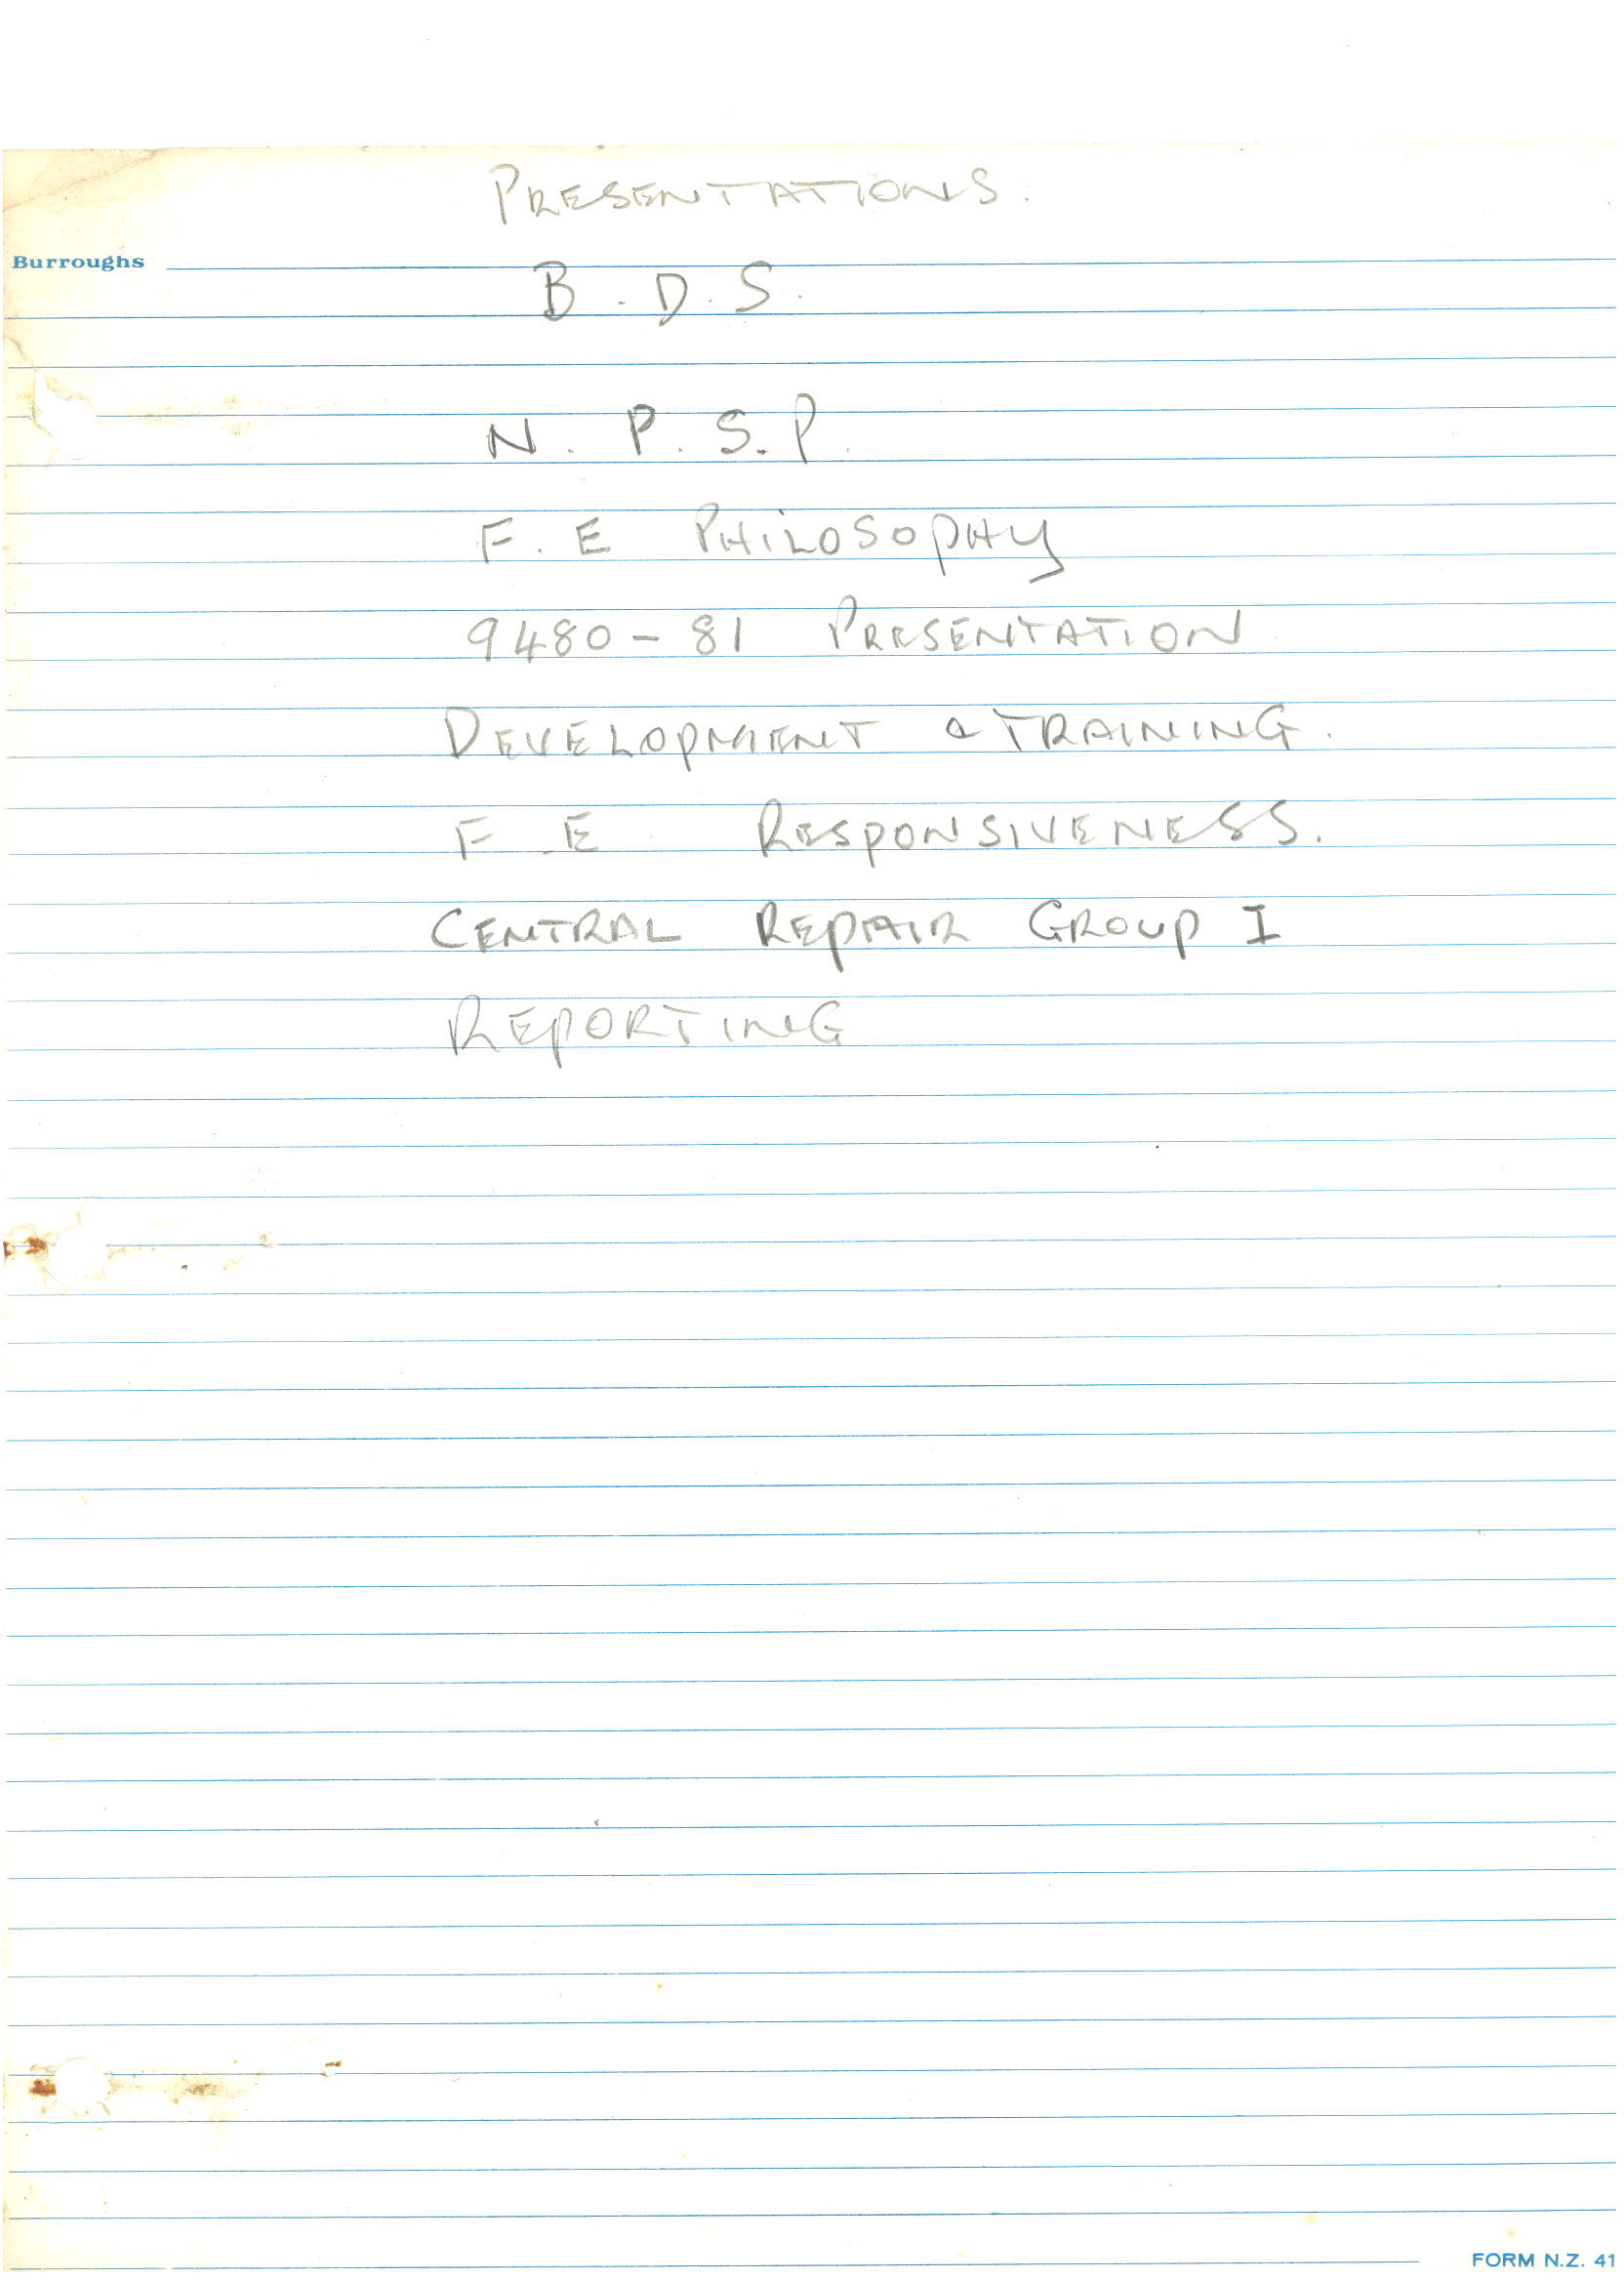 PRESENTATIONS.
Burroughs
B. D. S.
N. P. S. P.
F. E PHILOSOPHY
9480 - 81 PRESENTATION
DEVELOPMENT & TRAINING.
F. E. RESPONSIVENESS.
CENTRAL REPAIR GROUP I
REPORTING
FORM N.Z. 41